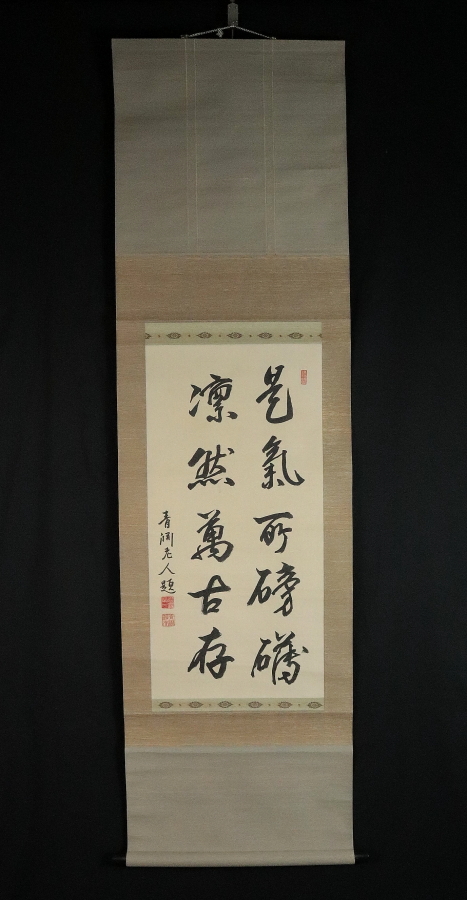 是氣所磅礴
凜然萬古存
青淵老人題